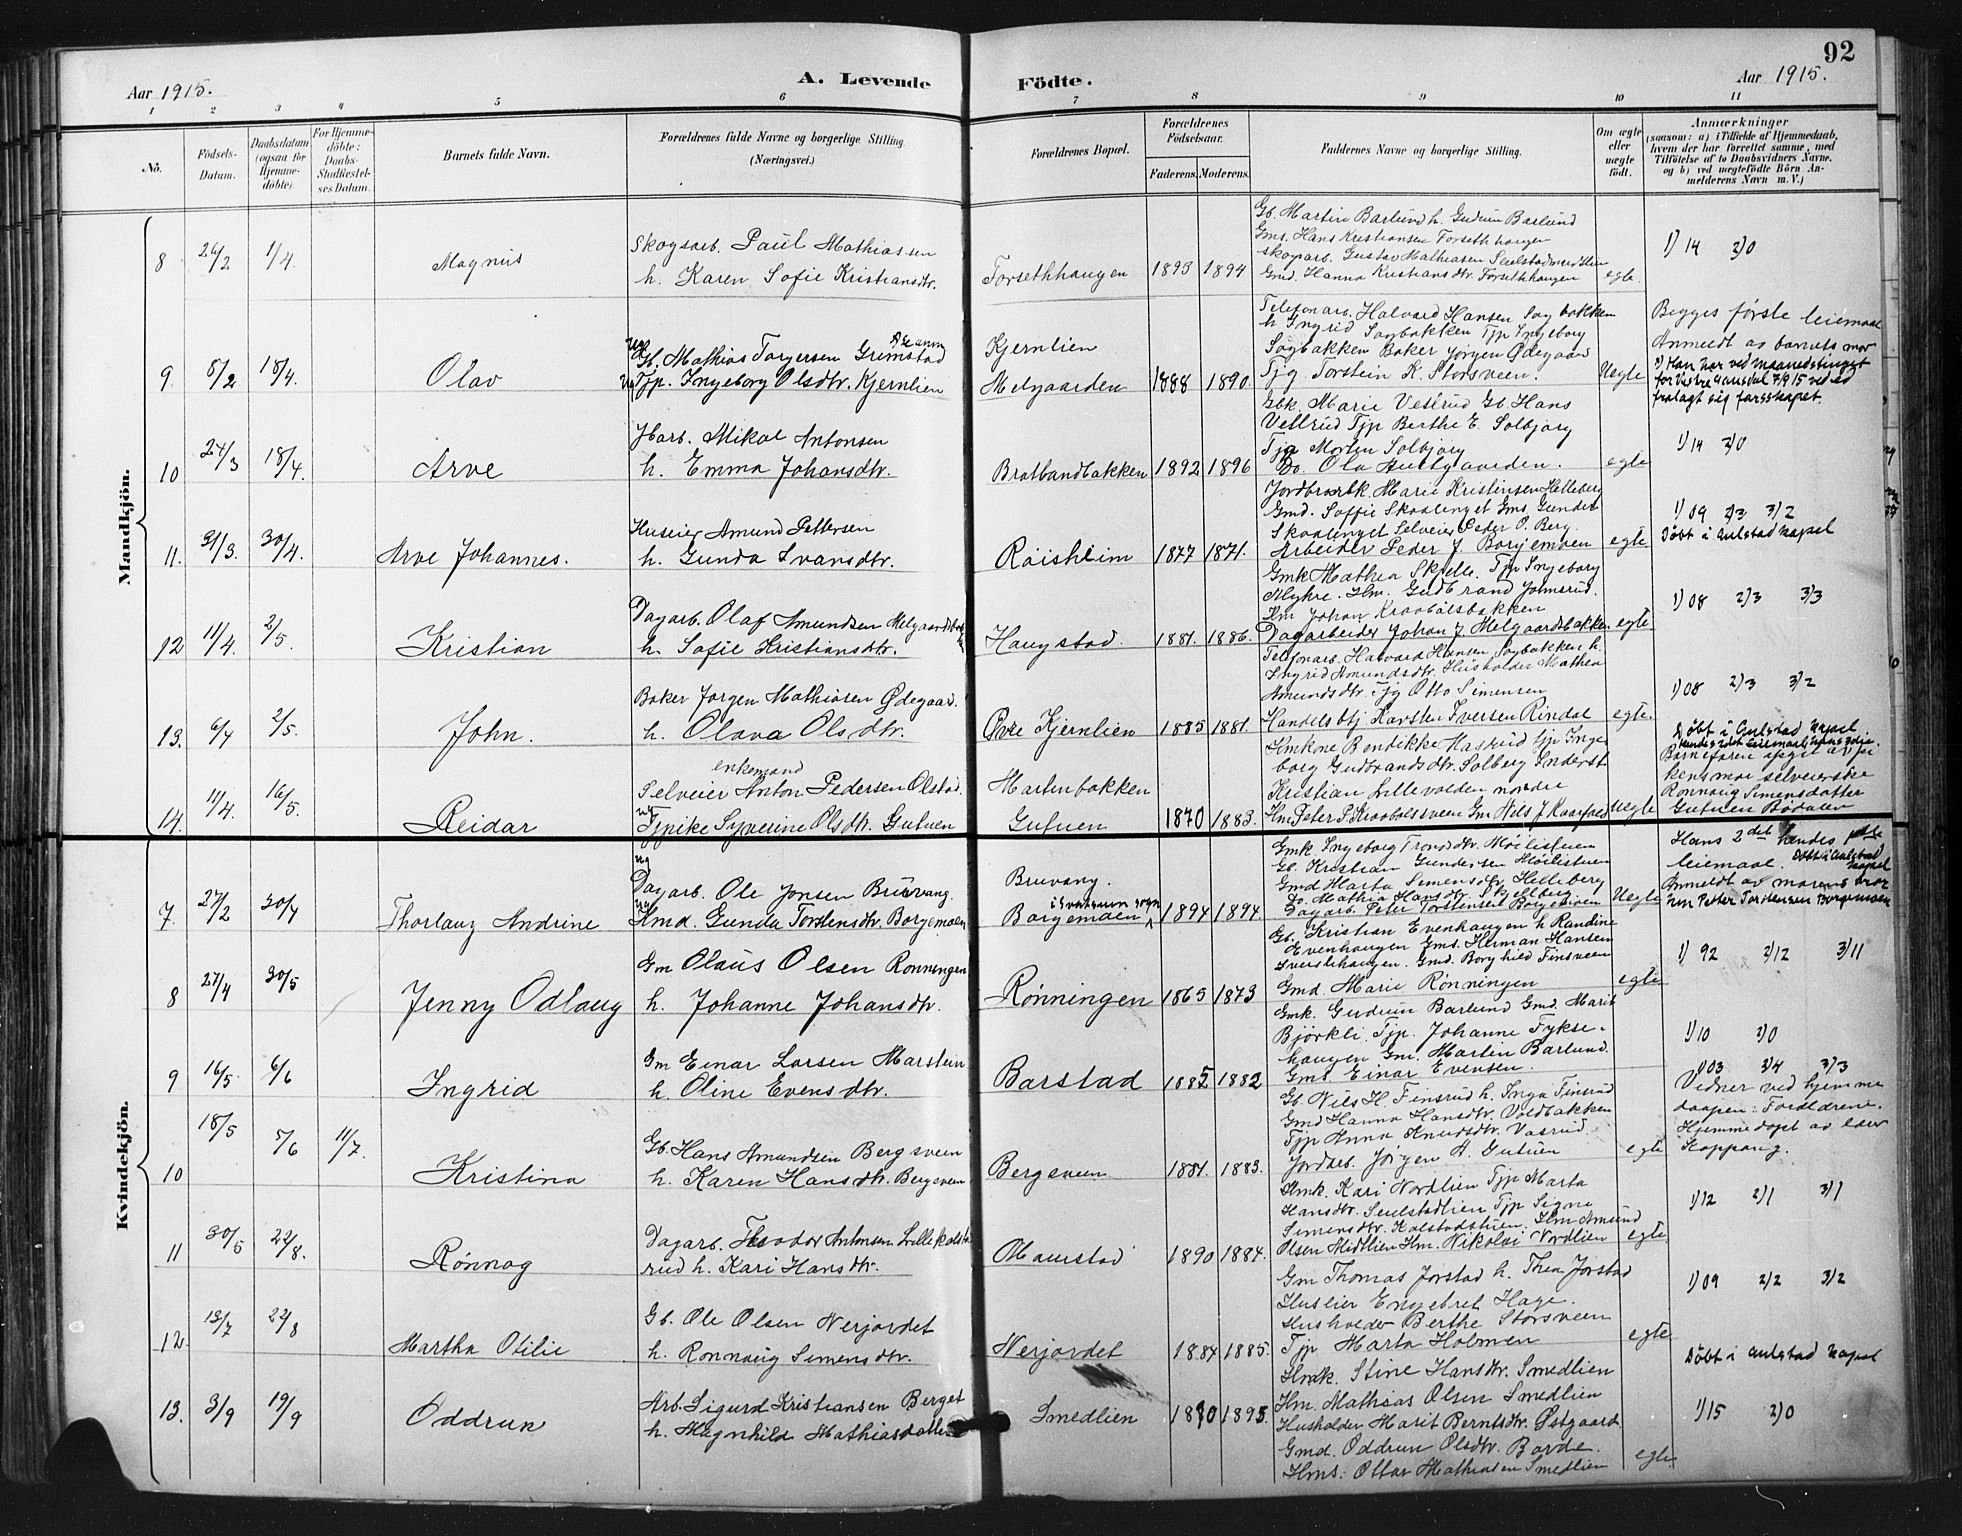 92
Aar 1915.
A. Levende Födte.
Aar 1915.
1 2 3 4 5 6 7 8 9 10 11
No.
Födsels-Datum.
Daabsdatum (ogsaa for Hjemme-döbte).
For Hjemme-döbte: Daabs-Stadfæstel-ses Datum.
Barnets fulde Navn.
Forældrenes fulde Navne og borgerlige Stilling (Næringsvei.)
Forældrenes Bopæl.
Forældrenes Födselsaar.
Faderens. Moderens.
Faddernes Navne og borgerlige Stilling.
Om ægte eller uægte födt.
Anmærkninger
(saasom: a) i Tilfælde af Hjemmedaab,
hvem der har forrettet samme, med
Tilföielse af to Daabsvidners Navne,
og b) ved uægtefödte Börn An-
melderens Navn m.V.)
Mandkjön.
8 26/2 1/4. Magnus
Skogsarb. Paul Mathiassen
h. Karen Sofie Kristiansdtr.
Forsethhaugen 1893 1894
Gb. Martin Barlund h. Gudrun Barlund
Gms. Hans Kristiansen Forsethhaugen
Skogarb. Gustav Mathiasen
Gmd. Hanna Kristiansdtr. Forsethhaugen
egte.
1) 14 2) 0
9. 8/2 18/4. Olav
Gb. Mathias Torgersen Grimstad
Tjp. Ingeborg Olsdtr. Kjernlien
Kjernlien
Melgaarden 1888 1890.
Telefonarb. Halvard Hansen Sagbakken
h Ingrid Sagbakken Tjp Ingeborg
Sagbakken Baker Jørgen Ødegaard
Tjg. Torstein K. Storsveen.
Uegte
Begges første leiemaal
Anmeldt av barnets mor
2) Han har ved maanedstinget
for Vestre Gausdal 7/9 15 ved ed
fralagt sig farsskapet.
10 24/3 18/4. Arve
Jharb. Mikal Antonsen
h. Emma Johansdtr.
Bratlandbakken 1892 1896
Gbk. Marie Vestrud Gb Hans
Vestrud Tjp Berthe E. Solbjørg
Tjg Morten Solbjørg
Do. Ola
egte
1) 14 2) 0
11. 31/3. 30/4. Arve Johannes.
Huseier Amund Pettersen
h. Gunda Ivarsdtr.
Röisheim 1877 1871.
Jordbrarbk. Marie Kristinsen Helleberg
Gmd. Soffie Skaalenget Gms. Gunder
Skaalenget Selveier Peder O. Berg.
Arbeider Peder J. Borjemoen
egte
1) 09 2) 3 3) 2
Døbt i Aulstad kapel
12 11/4. 2/5. Kristian
Dagarb. Olaf Amundsen Melgaardsbakken
h. Sofie Kristiansdtr.
Haugstad. 1881. 1886.
Gmk Mathea Skjelle. Tjp Ingeborg
Myhre. Hm. Gudbrand
Hm Johan Kraabølsbakken
Dagarbeider Johan J. Melgaardsbakken
egte
1) 08 2) 3 3) 3
13. 6/4 2/5. John.
Baker Jørgen Mathiasen Ødegaard.
h. Olava Olsdtr.
Øvre Kjernlien 1885 1881.
Telefonarb. Halvard Hansen Sagbakken h.
Ingrid Amundsdtr. Husholder Mathea
Amundsdtr. Tjg Otto Simensen
Handelsbtj. Karsten Iversen Rindal
egte.
1) 08 2) 3 3) 2
Døbt i Aulstad kapel
14. 11/4. 16/5. Reidar
enkemand
Selveier Anton Pedersen Olstad.
Tjpike Syverine Olsdtr. Gutuen
Martinbakken
Gutuen 1870 1883.
Hmkone Bendikke Tjp Inge
borg Gudbrandsdtr. Solberg
Kristian Lillevolden nordre
Hm Peter P. Kraabølssveen Gm Nils J.
Uegte
Barnefaren opgit av pi
kens mor selveierske
Rønnaug Simensdatter
Gutuen Bødalen
Kvindekjön.
7. 27/2 30/4 Thorlaug Andrine
Dagarb. Ole Jonsen Bruvang.
Hmd. Gunda Torstensdtr. Borgemoen
Bruvang.
Borgemoen 1894 1894
Gmk. Ingeborg Trondsdtr. Møilistuen
Gb. Kristian Gundersen Møilistuen
Gmd Marta Simensdtr. Helleberg
Do. Mathia Hansdtr. Skjelberg
Dagarb. Peter Torstensen Borgemoen
Uegte
Hans 2det hendes første
leiemaal. Døbt i Aulstad kapel
Anmeldt av morens bror
hm Petter Torstensen Borgemoen
8 27/4 30/5 Jenny Odlaug
Gm Olaus Olsen Rønningen
h. Johanne Johansdtr.
Rønningen 1865 1873
Gb. Kristian Evenhaugen h Randine
Evenhaugen Gms. Herman Hansen
Iverslihaugen. Gmd. Borghild Finsveen
Gmd. Marie Rønningen
egte
1) 92 2) 12 3) 11
9 16/5. 6/6 Ingrid
Gm Einar Larsen Marstein
h. Oline Evensdtr.
Barstad 1885 1882
Gmk. Gudrun Barlund Gmd. Marit
Bjørkli. Tjp. Johanne Fykse-
haugen Gm. Martin Barlund.
Gms. Einar Evensen.
1) 10 2) 0
10 18/5 5/6 11/7. Kristina
Gb. Hans Amundsen Bergsveen
h. Karen Hansdtr. Bergsveen
Bergsveen 1881. 1883.
Gb. Nils H. Finsrud h. Inga Finsrud
Gmd Hanna Hansdtr. Voldbakken
Tjp Anna Knudsdtr. Vasrud.
Jordarb. Jørgen A. Gutuen
egte
1) 03 2) 4 3) 3
Vidner ved hjemme
daapen: Forældrene.
Hjemmedøpt av
11 30/5 22/8. Rønnog
Dagarb. Theodor Antonsen Lillekalsta
rud h. Kari Hansdtr.
Olaustad 1890 1884.
Hmk. Kari Nordlien Tjp Marta
Hansdtr. Seielstadlien Tjp Signe
Simensdtr. Kalstadstuen. Hm Amund
Olsen Midtlien Hm. Nikolai Nordlien
egte
1) 12 2) 1 3) 1
12. 13/7 22/8 Martha Otilie
Gb. Ole Olsen Nerjordet
h. Rønnaug Simensdtr.
Nerjordet 1884 1885.
Gm Thomas Jorstad h. Thea Jorstad
Huseier Engebret Hage.
Husholder Berthe Storsveen
Tjp Marta Holmen
egte
1) 09 2) 2 3) 2
Døbt i Aulstad kapel
13. 3/9 19/9 Oddrun
Arb. Sigurd Kristiansen Berget
h. Magnhild Mathiasdatter
Smedlien 1890 1895.
Hmk. Stine Hansdtr. Smedlien
Hm. Mathias Olsen Smedlien
Husholder Marit Berntsdtr. Østgaard
Gmd. Oddrun Olsdtr. Barde.
Hms: Ottar Mathiasen Smedlien
egte
1) 15 2) 0